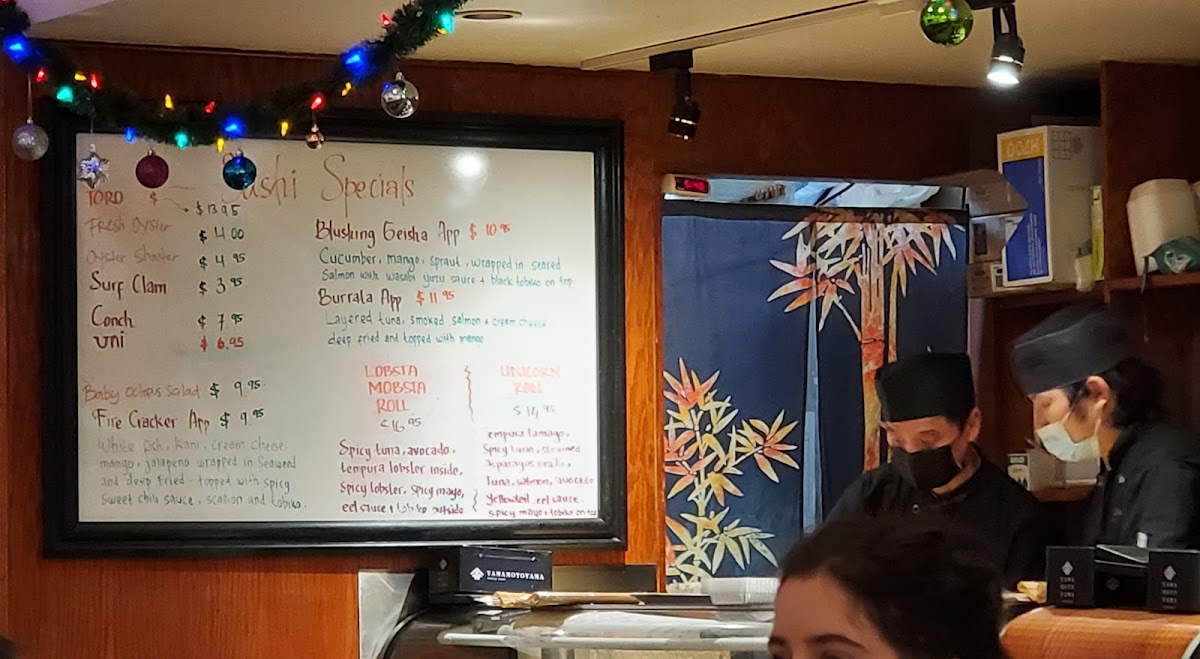 Sushi Specials
TORO $
$ 13.95
Fresh Oyster $ 4.00
Oyster Shooter $ 4.95
Surf Clam $ 3.95
Conch $ 7.95
Uni $ 6.95
Baby Octopus Salad $ 9.95
Fire Cracker App $ 9.95
White fish, Kani, cream cheese,
mango, jalapeno wrapped in Seaweed
and deep fried - topped with spicy
sweet chili sauce, scallion and tobiko.
Blushing Geisha App $ 10.95
Cucumber, mango, sprout, wrapped in seared
Salmon with wasabi yuzu sauce + black tobiko on top
Burrala App $ 11.95
Layered tuna, smoked salmon + cream cheese
deep fried and topped with mango
LOBSTA
MOBSTA
ROLL
$16.95
Spicy tuna, avocado,
tempura lobster inside,
Spicy lobster, spicy mayo,
eel sauce + tobiko outside
UNICORN
ROLL
$ 14.95
empura tamago,
Spicy tuna, steamed
asparagus inside,
Tuna, salmon, avocado
yellowtail, eel sauce.
spicy mayo + tobiko on top
YAMAMOTOYAMA
YAMA
MOTO
YAMA
YAMA
MOTO
YAMA